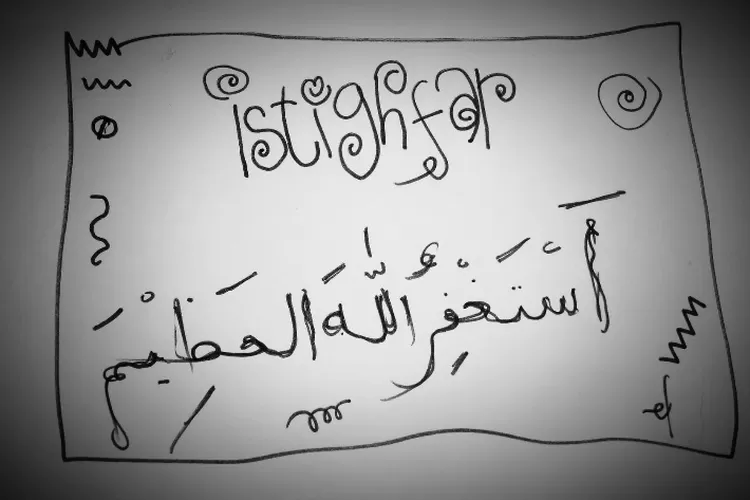 istighfar
أَسْتَغْفِرُ اللّٰهَ الْعَظِيْمَ